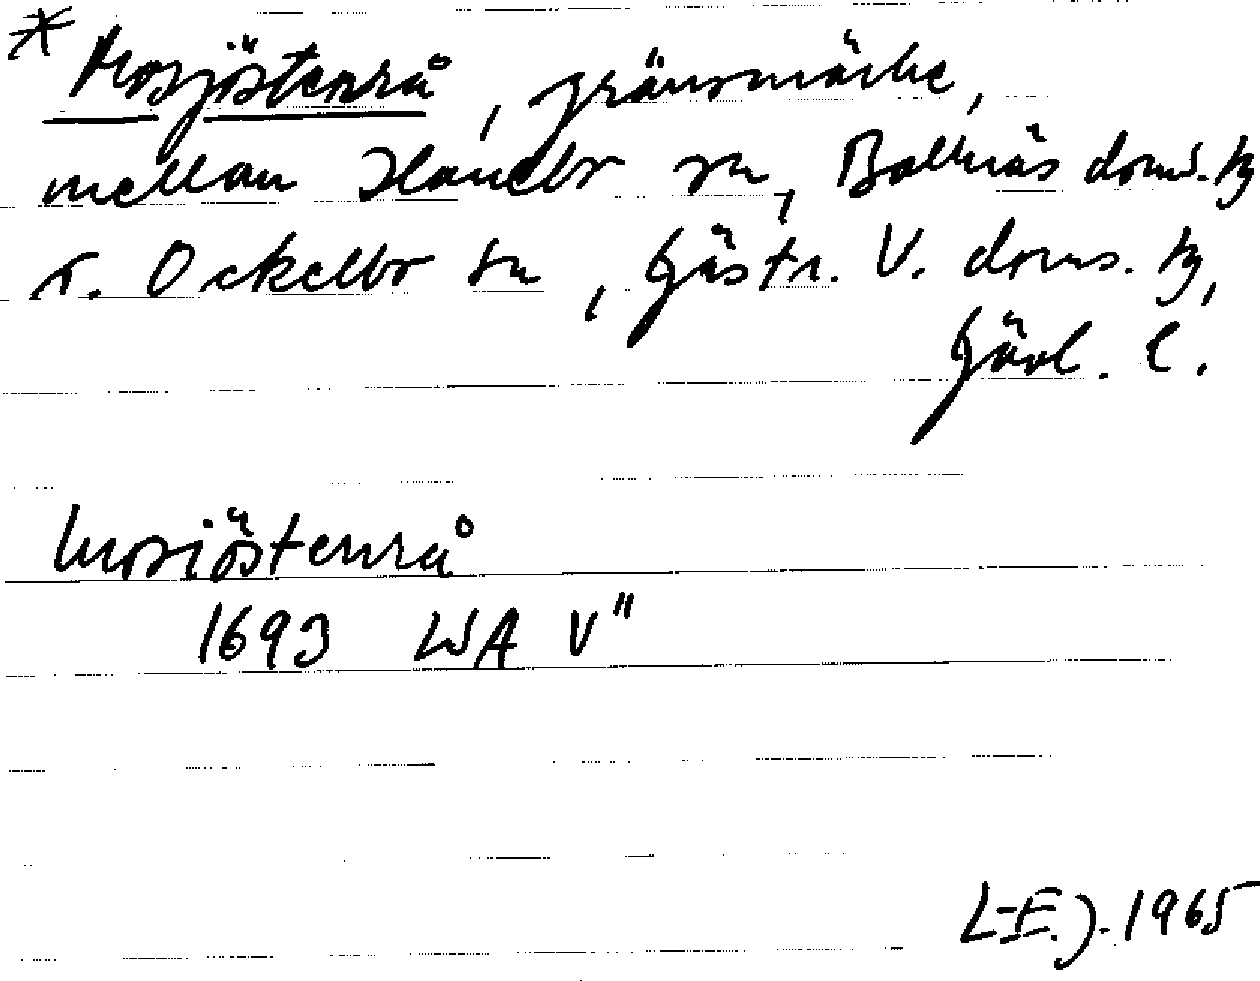 * Mosjöstensrå, gränsmärke,
mellan Hanebo sn, Bollnäs doms. hg
o. Ockelbo sn, Gästr. V. doms. hg,
Gävl. l.
Mosiöstenrå
1693 LSA V"
L-E. J. 1965